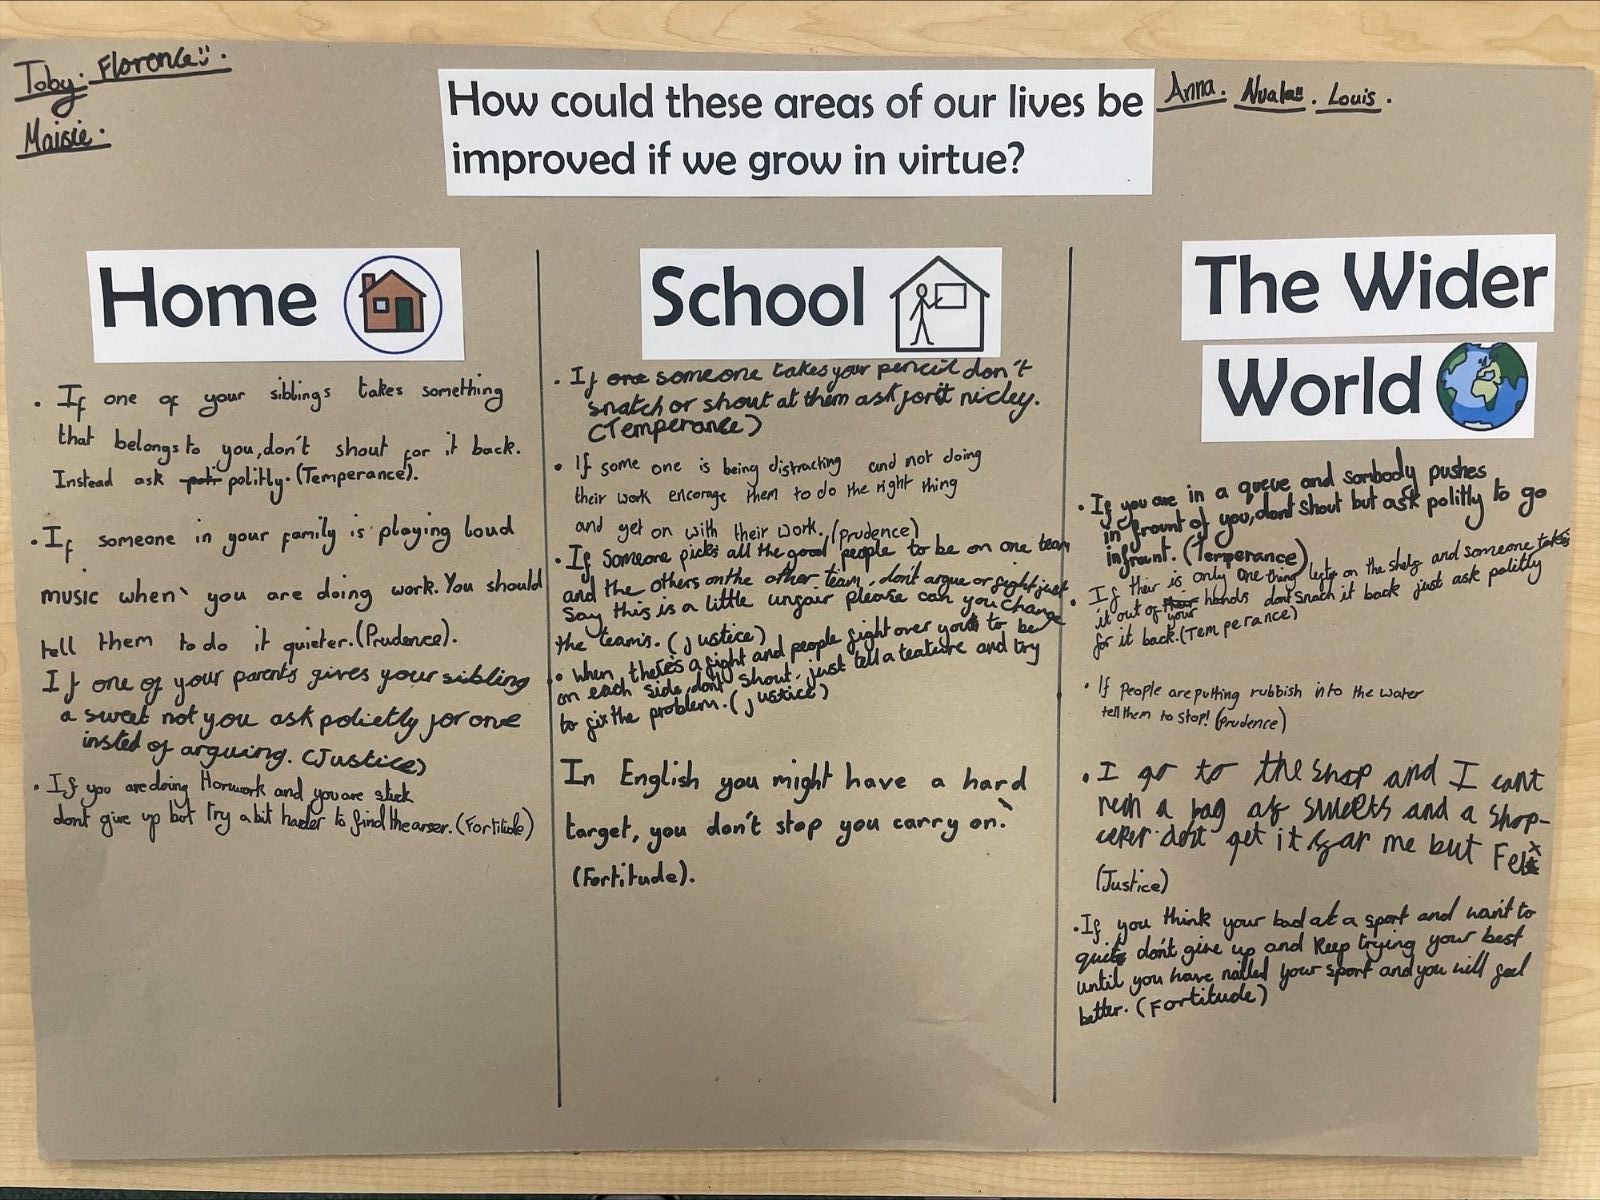 Toby. Florence.
Maisie.
How could these areas of our lives be
improved if we grow in virtue?
Anna. Nuala. Louis.
Home
. If one of your siblings takes something
that belongs to you, don't shout for it back.
Instead ask politly. (Temperance).
. If someone in your family is playing loud
music when you are doing work. You should
tell them to do it quieter. (Prudence).
If one of your parents gives your sibling
a sweet not you ask polietly for one
insted of arguing. (Justice)
. If you are doing Homwork and you are stuck
dont give up but try a bit harder to find the anser. (Fortitude)
School
. If one someone takes your pencil don't
snatch or shout at them ask for it nicley.
(Temperance)
. If some one is being distracting and not doing
their work encorage them to do the right thing
and get on with their work. (prudence)
. If Someone picks all the good people to be on one team
and the others on the other team, don't argue or fight just
say this is a little unfair please can you change
the teams. (justice)
. When there's a fight and people fight over you to be
on each side, don't shout, just tell a teature and try
to fix the problem. (justice)
In English you might have a hard
target, you don't stop you carry on.
(Fortitude).
The Wider
World
. If you are in a queue and sombody pushes
in frount of you, dont shout but ask politly to go
infrount. (Temperance)
. If their is only one thing left on the shelf and someone takes
it out of your hands dont snach it back just ask politly
for it back. (Temperance)
. If people are putting rubbish into the water
tell them to stop! (Prudence)
. I go to the shop and I cant
rech a bag of sweets and a shop-
dont get it for me but Felix
(Justice)
. If you think your bad at a sport and want to
quit don't give up and keep trying your best
until you have nailed your sport and you will feel
better. (Fortitude)